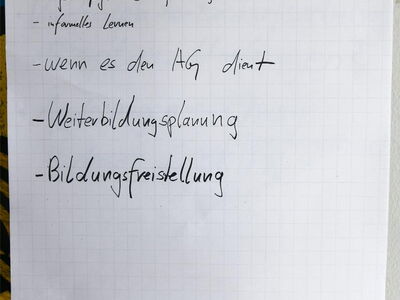 - informelles Lernen
- wenn es den AG dient
- Weiterbildungsplanung
- Bildungsfreistellung